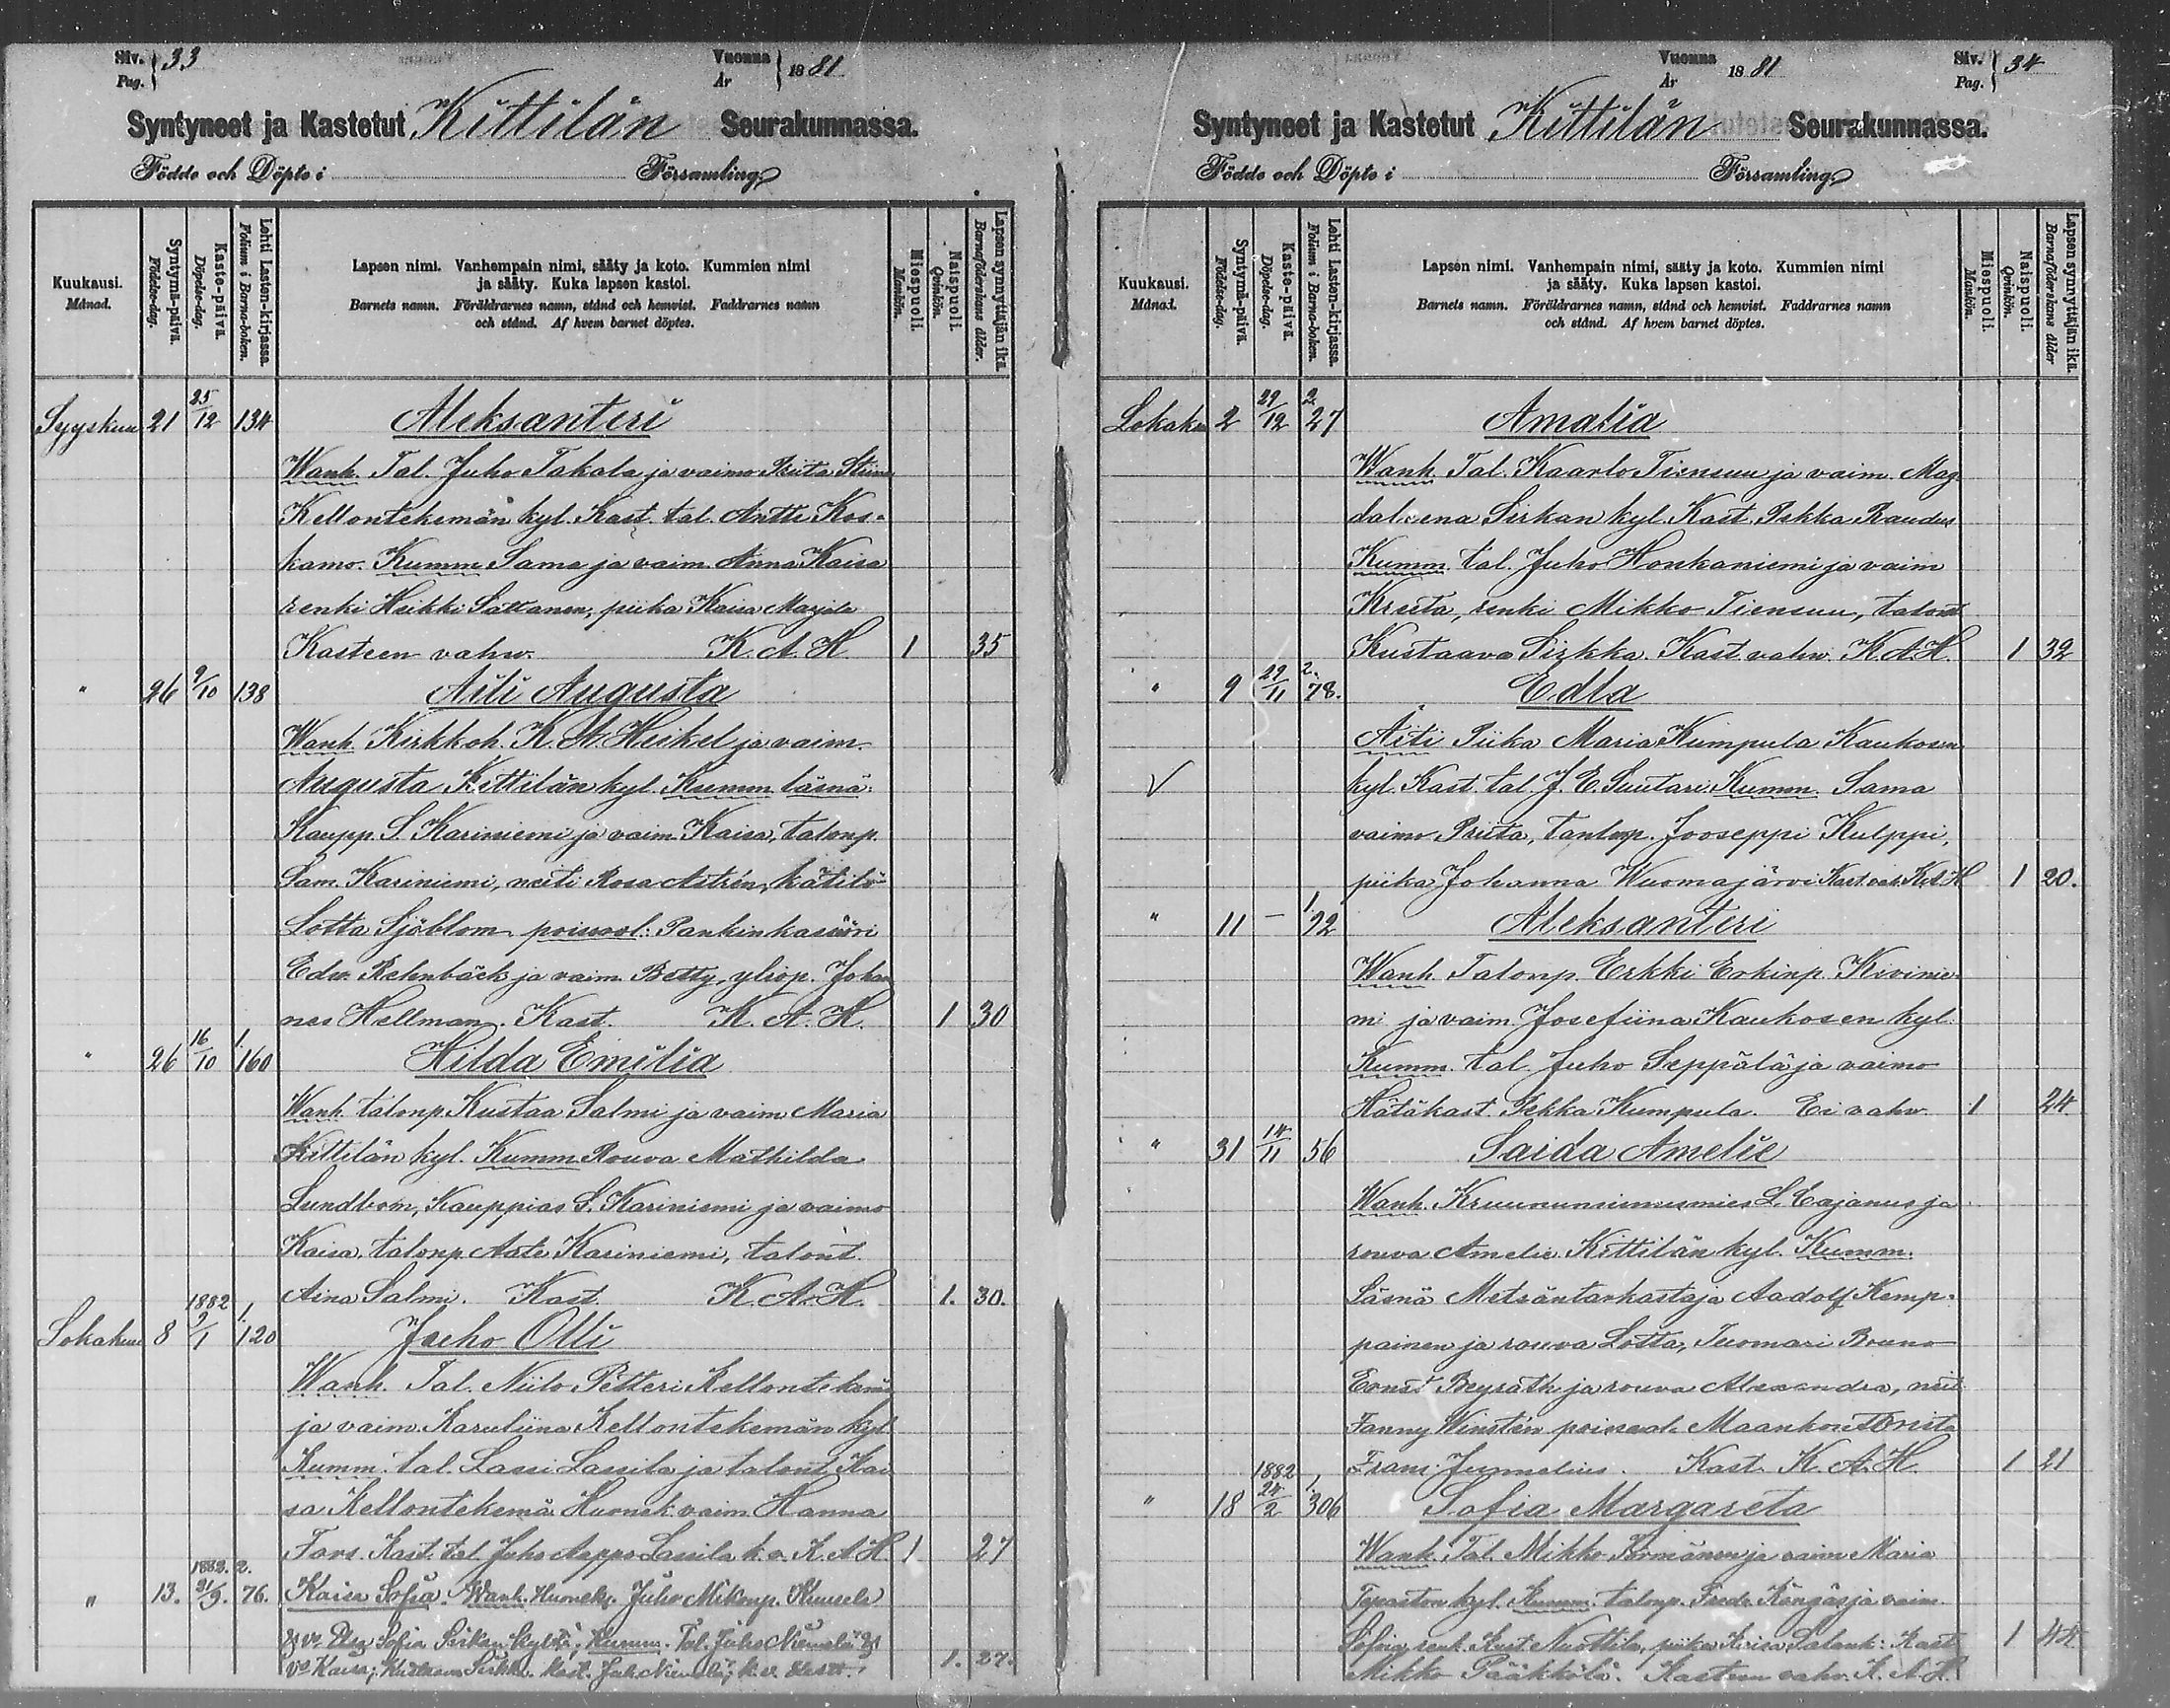 Siv. Pag. } 33
Vuonna År } 1881
Syntyneet ja Kastetut Kittilän Seurakunnassa.
Födde och Döpte i Församling
Kuukausi. Månad.
Syntymä-päivä. Födelse-dag.
Kaste-päivä. Döpelse-dag.
Lehti Lasten-kirjassa. Folium i Barna-boken.
Lapsen nimi. Vanhempain nimi, sääty ja koto. Kummien nimi
ja sääty. Kuka lapsen kastoi.
Barnets namn. Föräldrarnes namn, stånd och hemvist. Faddrarnes namn
och stånd. Af hvem barnet döptes.
Miespuoli. Mankön.
Naispuoli. Qvinkön.
Lapsen synnyttäjän ikä. Barnaföderskans ålder.
Syyskuu 21 25/12 134 Aleksanteri
Wanh. Tal. Juho Takala ja vaimo Priita Stiina
Kellontekemän kyl. Kast. tal. Antti Kos-
kamo. Kumm. Sama ja vaim. Anna Kaisa
renki Heikki Sattanen, piika Kaisa Marjala
Kasteen vahw. K. A. H 1 35
" 26 9/10 138 Aili Augusta
Wanh. Kirkkoh. K. A. Heikel ja vaim.
Augusta Kittilän kyl. Kumm. läsnä:
Kaupp. S. Kariniemi ja vaim. Kaisa, talonp.
Sam. Kariniemi, neiti Rosa Astrén, kätilö
Lotta Sjöblom. poissol: Pankinkasööri
Edw. Rehnbäck ja vaim. Betty, yliop. Johan
nes Hellman. Kast. K. A. H. 1 30
" 26 16/10 1. 160 Hilda Emilia
Wanh. talonp. Kustaa Salmi ja vaim. Maria
Kittilän kyl. Kumm. Rouva Mathilda
Lundbom, Kauppias S. Kariniemi ja vaimo
Kaisa, talonp. Kariniemi, talont.
Aina Salmi. Kast. K. A. H. 1. 30.
Lokakuu 8 1882 9/1 1. 120 Juho Olli
Wanh. Tal. Niilo Petteri Kellontekemä
ja vaim. Karuliina Kellontekemän kyl.
Kumm. tal. Lassi Lassila ja talont. Kai
sa Kellontekemä Huonek. vaim. Hanna
Fors. Kast. tal. Juho Aappo Lassila k. v. K. A. H. 1 27
" 13. 1882. 21/9. 2. 76. Kaisa Sofia. Wanh. Huoneks. Juho Mikonp. Kuusela
Sofia Sirkan kylää; Kumm. Tal. Juho Niemelä
vo Kaisa; Sirkka. Kast. Juh. Niemelä; k. v. 1. 27.
Vuonna År 1881
Siv. Pag. } 34
Syntyneet ja Kastetut Kittilän Seurakunnassa.
Födde och Döpte i Församling
Kuukausi. Månad.
Syntymä-päivä. Födelse-dag.
Kaste-päivä. Döpelse-dag.
Lehti Lasten-kirjassa. Folium i Barna-boken.
Lapsen nimi. Vanhempain nimi, sääty ja koto. Kummien nimi
ja sääty. Kuka lapsen kastoi.
Barnets namn. Föräldrarnes namn, stånd och hemvist. Faddrarnes namn
och stånd. Af hvem barnet döptes.
Miespuoli. Mankön.
Naispuoli. Qvinkön.
Lapsen synnyttäjän ikä. Barnaföderskans ålder
Lokaku 2 29/12 2 27 Amalia
Wanh. Tal. Kaarlo Tiensuu ja vaim. Mag
daleena Sirkan kyl. Kast. Pekka Raudus
Kumm. tal. Juho Honkaniemi ja vaim
Kreeta, renki Mikko Tiensuu, talont
Kustaava Sirkka. Kast. vahw. K. A. H. 1 32
" 9 29/11 2. 78. Edla
Äiti Piika Maria Kumpula Kaukosen
√ kyl. Kast. tal. J. E. Suutari. Kumm. Sama
vaimo Priita, Jooseppi Kulppi,
piika Johanna Wuomajärvi Kast. vah. K. A. H 1 20.
" 11 - 1. 92 Aleksanteri
Wanh. Talonp. Erkki Erkinp. Kivinie-
mi ja vaim. Josefiina Kaukosen kyl.
Kumm. tal. Juho Seppälä ja vaimo
Hätäkast. Pekka Kumpula. Ei vahw. 1 24
" 31 14/11 56 Saida Amelie
Wanh. Kruununnimismies L. Cajanus ja
rouva Amelie Kittilän kyl. Kumm.
Läsnä Metsäntarkastaja Aadolf Kemp-
painen ja rouva Lotta, Tuomari Bruno
Ernst Beyrath ja rouva Alexandra, neit
Fanny Winstén poissaol. Maankonttorista
Frans Jumelius. Kast. K. A. H. 1 21
" 18 1882 24/2 1. 306 Sofia Margareta
Wanh. Tal. Mikko Formänen ja vaim Maria
Tepaston kyl. Kumm. talonp. Fredr. Köngäs ja vaim.
Sofia, renk. Kust. Nuottila, piika Kaisa Kast 1 44
Mikko Pääkkölä. Kasteen vahv. K. A. H.